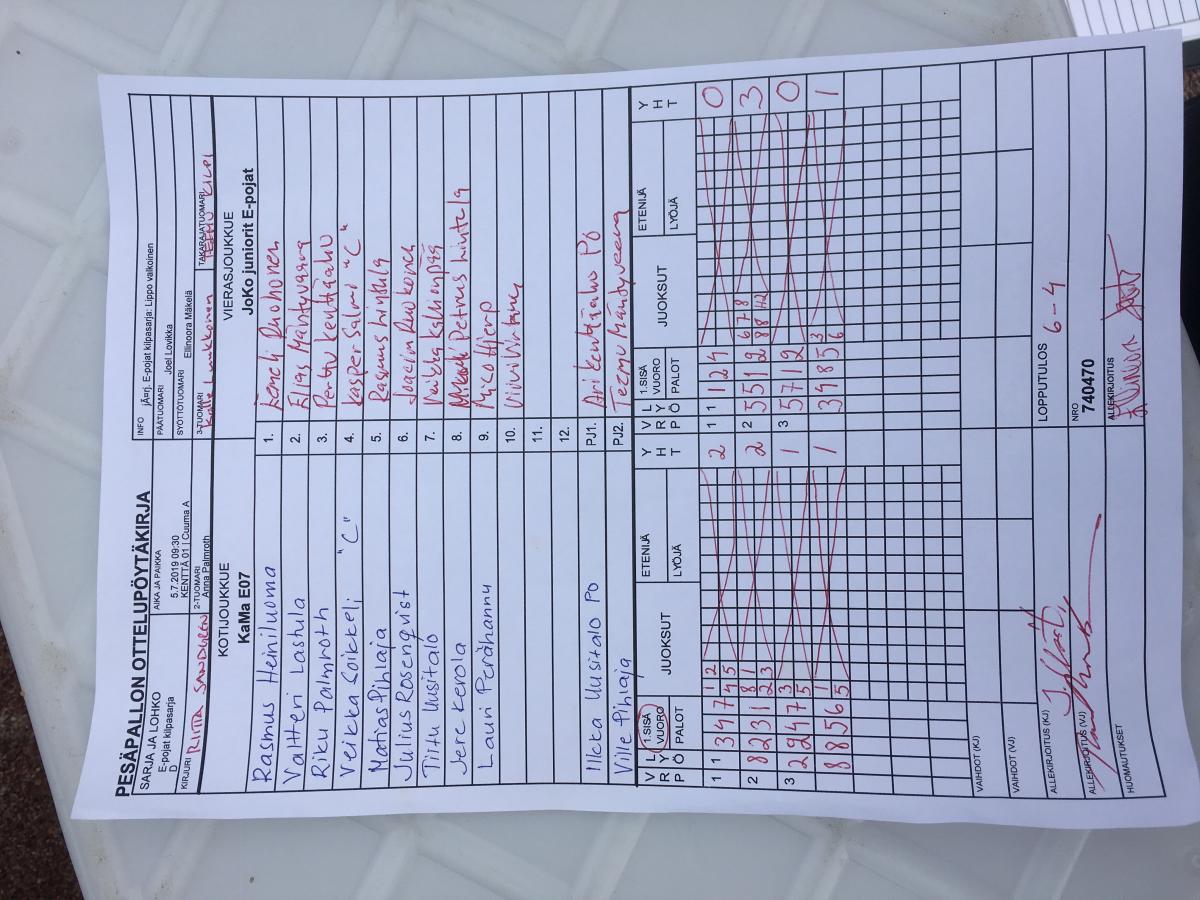 PESÄPALLON OTTELUPÖYTÄKIRJA
SARJA JA LOHKO
E-pojat kilpasarja
D
AIKA JA PAIKKA
5.7.2019 09:30
KENTTÄ 01 | Cuuma A
INFO jÄ¤rj. E-pojat kilpasarja: Lippo valkoinen
PÄÄTUOMARI Joel Lovikka
SYÖTTÖTUOMARI Ellinoora Mäkelä
KIRJURI RIITTA SANDGREN
2-TUOMARI
Anna Palmroth
3-TUOMARI
Kalle Luukkonen
TAKARAJATUOMARI
KOTIJOUKKUE
KaMa E07
VIERASJOUKKUE
JoKo juniorit E-pojat
Rasmus Heiniluoma 1. Eemeli Ruhonen
Valtteri Lastula 2. Elias Mäntyvaara
Riku Palmroth 3. Perttu kentäaho
Veikka Soikkeli "C" 4. kasper Salmi "C"
Matias Pihlaja 5. Rasmus hintsala
Julius Rosenqvist 6.
Tiitu Uusitalo 7.
Jere Kerola 8. Petrus hintsala
Lauri Perähannu 9. Mico
10. Viivi Virtanen
11.
12.
Ilkka Uusitalo PO PJ1. Ari kentäaho PO
Ville Pihlaja PJ2. Teemu Mäntyvaara
V L
R Y
P Ö
1.SISÄ
VUORO
PALOT
JUOKSUT
ETENIJÄ
LYÖJÄ
Y
H
T
V L
R Y
P Ö
1.SISÄ
VUORO
PALOT
JUOKSUT
ETENIJÄ
LYÖJÄ
Y
H
T
1 1 3 4 7 1 2 2 1 1 1 2 4 0
4 5
2 8 2 3 1 8 1 2 2 5 5 1 2 6 7 8 3
2 3
3 2 2 4 7 3 1 3 5 7 1 2 0
5
8 8 5 6 1 1 3 4 8 5 3 1
5 6
VAIHDOT (KJ)
VAIHDOT (VJ)
ALLEKIRJOITUS (KJ)
LOPPUTULOS 6-4
ALLEKIRJOITUS (VJ)
NRO
740470
HUOMAUTUKSET
ALLEKIRJOITUS